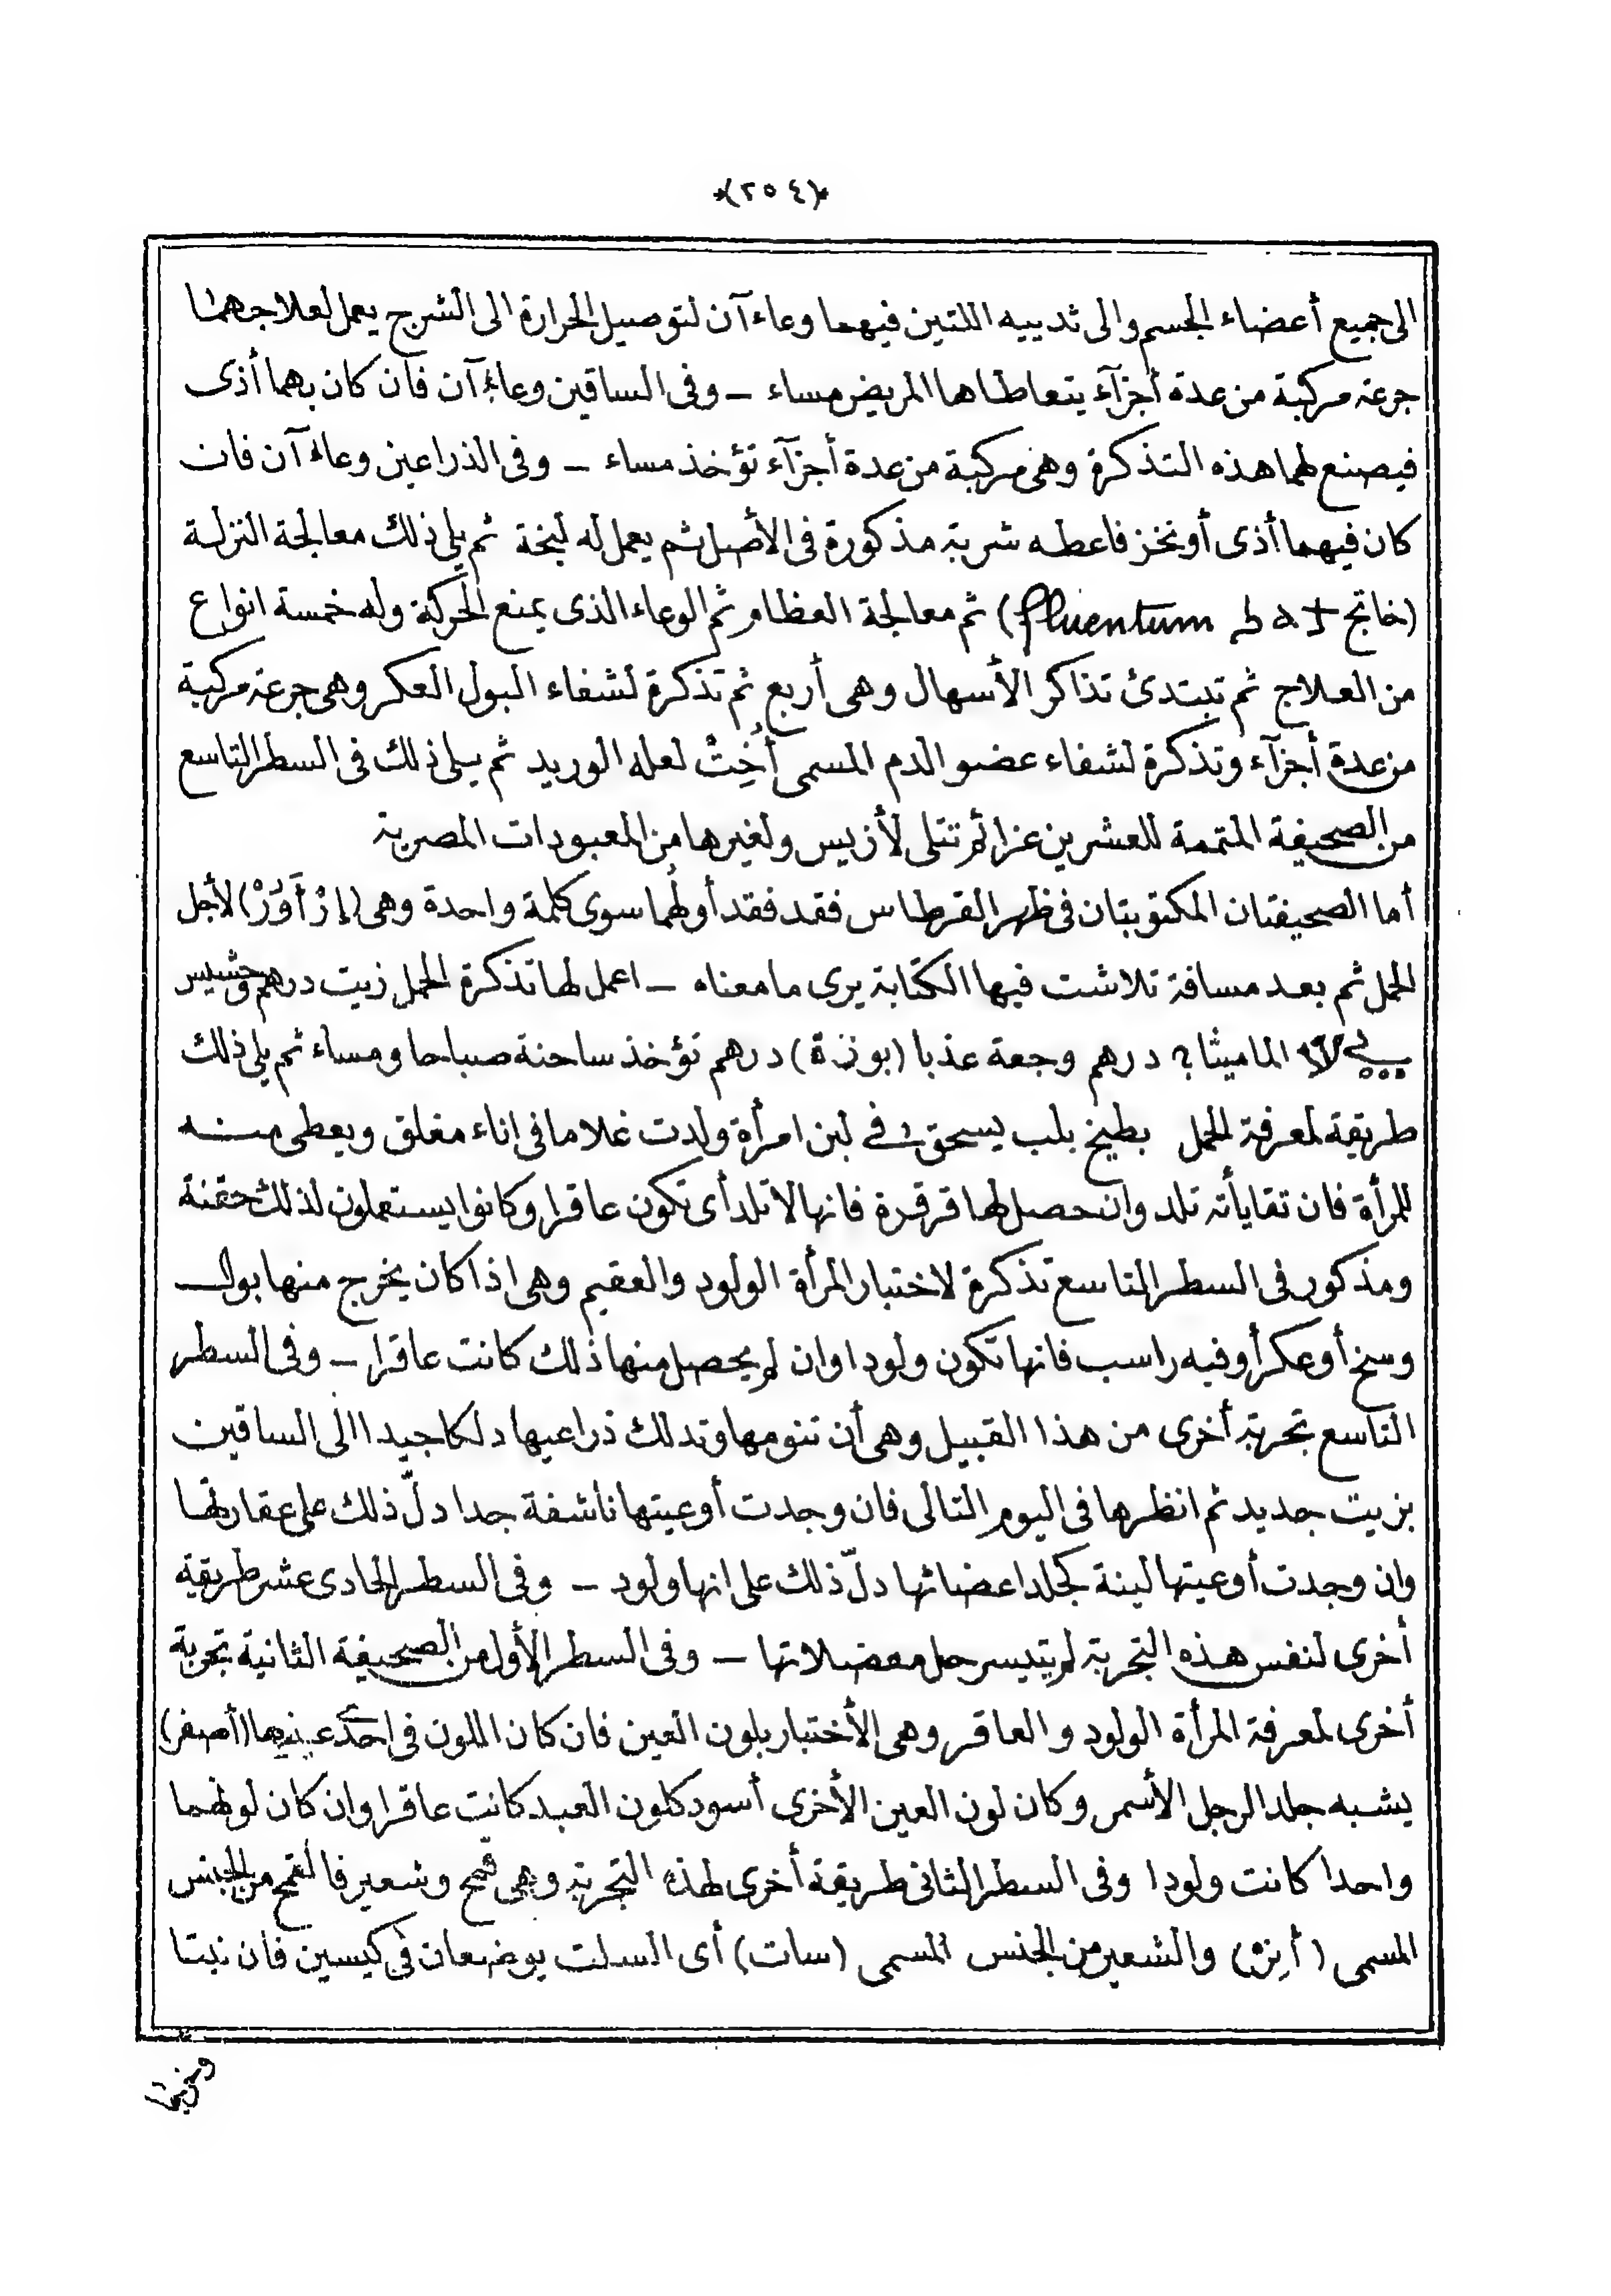 *(٢٥٤)*
الى جميع أعضاء الجسم والى ثدييه اللتين فيهما وعاءآن لتوصيل الحرارة الى الشرج يعمل لعلاجهما
جرعة مركبة من عدة أجزآء يتعاطاها المريض مساء – وفى الساقين وعاءآن فان كان بهما أذى
فيصنع لهما هذه التذكرة وهى مركبة من عدة أجزآء تؤخذ مساء – وفى الذراعين وعاءآن فان
كان فيهما أذى أو نخز فاعطه شربة مذكورة فى الأصل ثم يعمل له لبخة ثم يلى ذلك معالجة النزلة
(خاتج fluentum) ثم معالجة العظام ثم الوعاء الذى يمنع الحركة وله خمسة انواع
من العلاج ثم تبتدئ تذاكر الأسهال وهى أربع ثم تذكرة لشفاء البول العكر وهى جرعة مركبة
من عدة أجزآء وتذكرة لشفاء عضو الدم المسمى أُخِتْ لعله الوريد ثم يلى ذلك فى السطر التاسع
من الصحيفة المتممة للعشرين عزائم تتلى لأزيس ولغيرها من المعبودات المصرية
أما الصحيفتان المكتوبتان فى ظهر القرطاس فقد فقد أولهما سوى كلمة واحدة وهى (إرْ أَوُرْ) لأجل
الحمل ثم بعد مسافة تلاشت فيها الكتابة يرى ما معناه – اعمل لها تذكرة الحمل زيت درهم وحشيش
الماميثا ? درهم وجعة عذبا (بوزة) درهم تؤخذ ساخنة صباحا ومساء ثم يلى ذلك
طريقة لمعرفة الحمل بطيخ بلب يسحق فى لبن امرأة ولدت غلاما فى إناء مغلق ويعطى منه
للمرأة فان تقايأته تلد وان حصل لها قرقرة فانها لا تلد أى تكون عاقرا وكانوا يستعملون لذلك حقنة
ومذكور فى السطر التاسع تذكرة لاختبار المرأة الولود والعقيم وهى اذا كان يخرج منها بول
وسخ أو عكر أو فيه راسب فانها تكون ولودا وان لم يحصل منها ذلك كانت عاقرا – وفى السطر
التاسع تجربة أخرى من هذا القبيل وهى أن تنومها وتدلك ذراعيها دلكا جيدا الى الساقين
بزيت جديد ثم انظرها فى اليوم التالى فان وجدت أوعيتها ناشفة جدا دلّ ذلك على عقارتها
وان وجدت أوعيتها لينة كجلد اعضائها دلّ ذلك على انها ولود – وفى السطر الحادى عشر طريقة
أخرى لنفس هذه التجربة لم يتيسر حل معضلاتها – وفى السطر الأول من الصحيفة الثانية تجربة
أخرى لمعرفة المرأة الولود والعاقر وهى الأختبار بلون العين فان كان اللون فى احدى عينيها (أصفر)
يشبه جلد الرجل الأسمر وكان لون العين الأخرى أسود كلون العبد كانت عاقرا وان كان لونهما
واحدا كانت ولودا وفى السطر الثانى طريقة أخرى لهذه التجربة وهى قمح وشعير فالقمح من الجنس
المسمى (أنزه) والشعير من الجنس المسمى (سات) أى السلت يوضعان فى كيسين فان نبتا